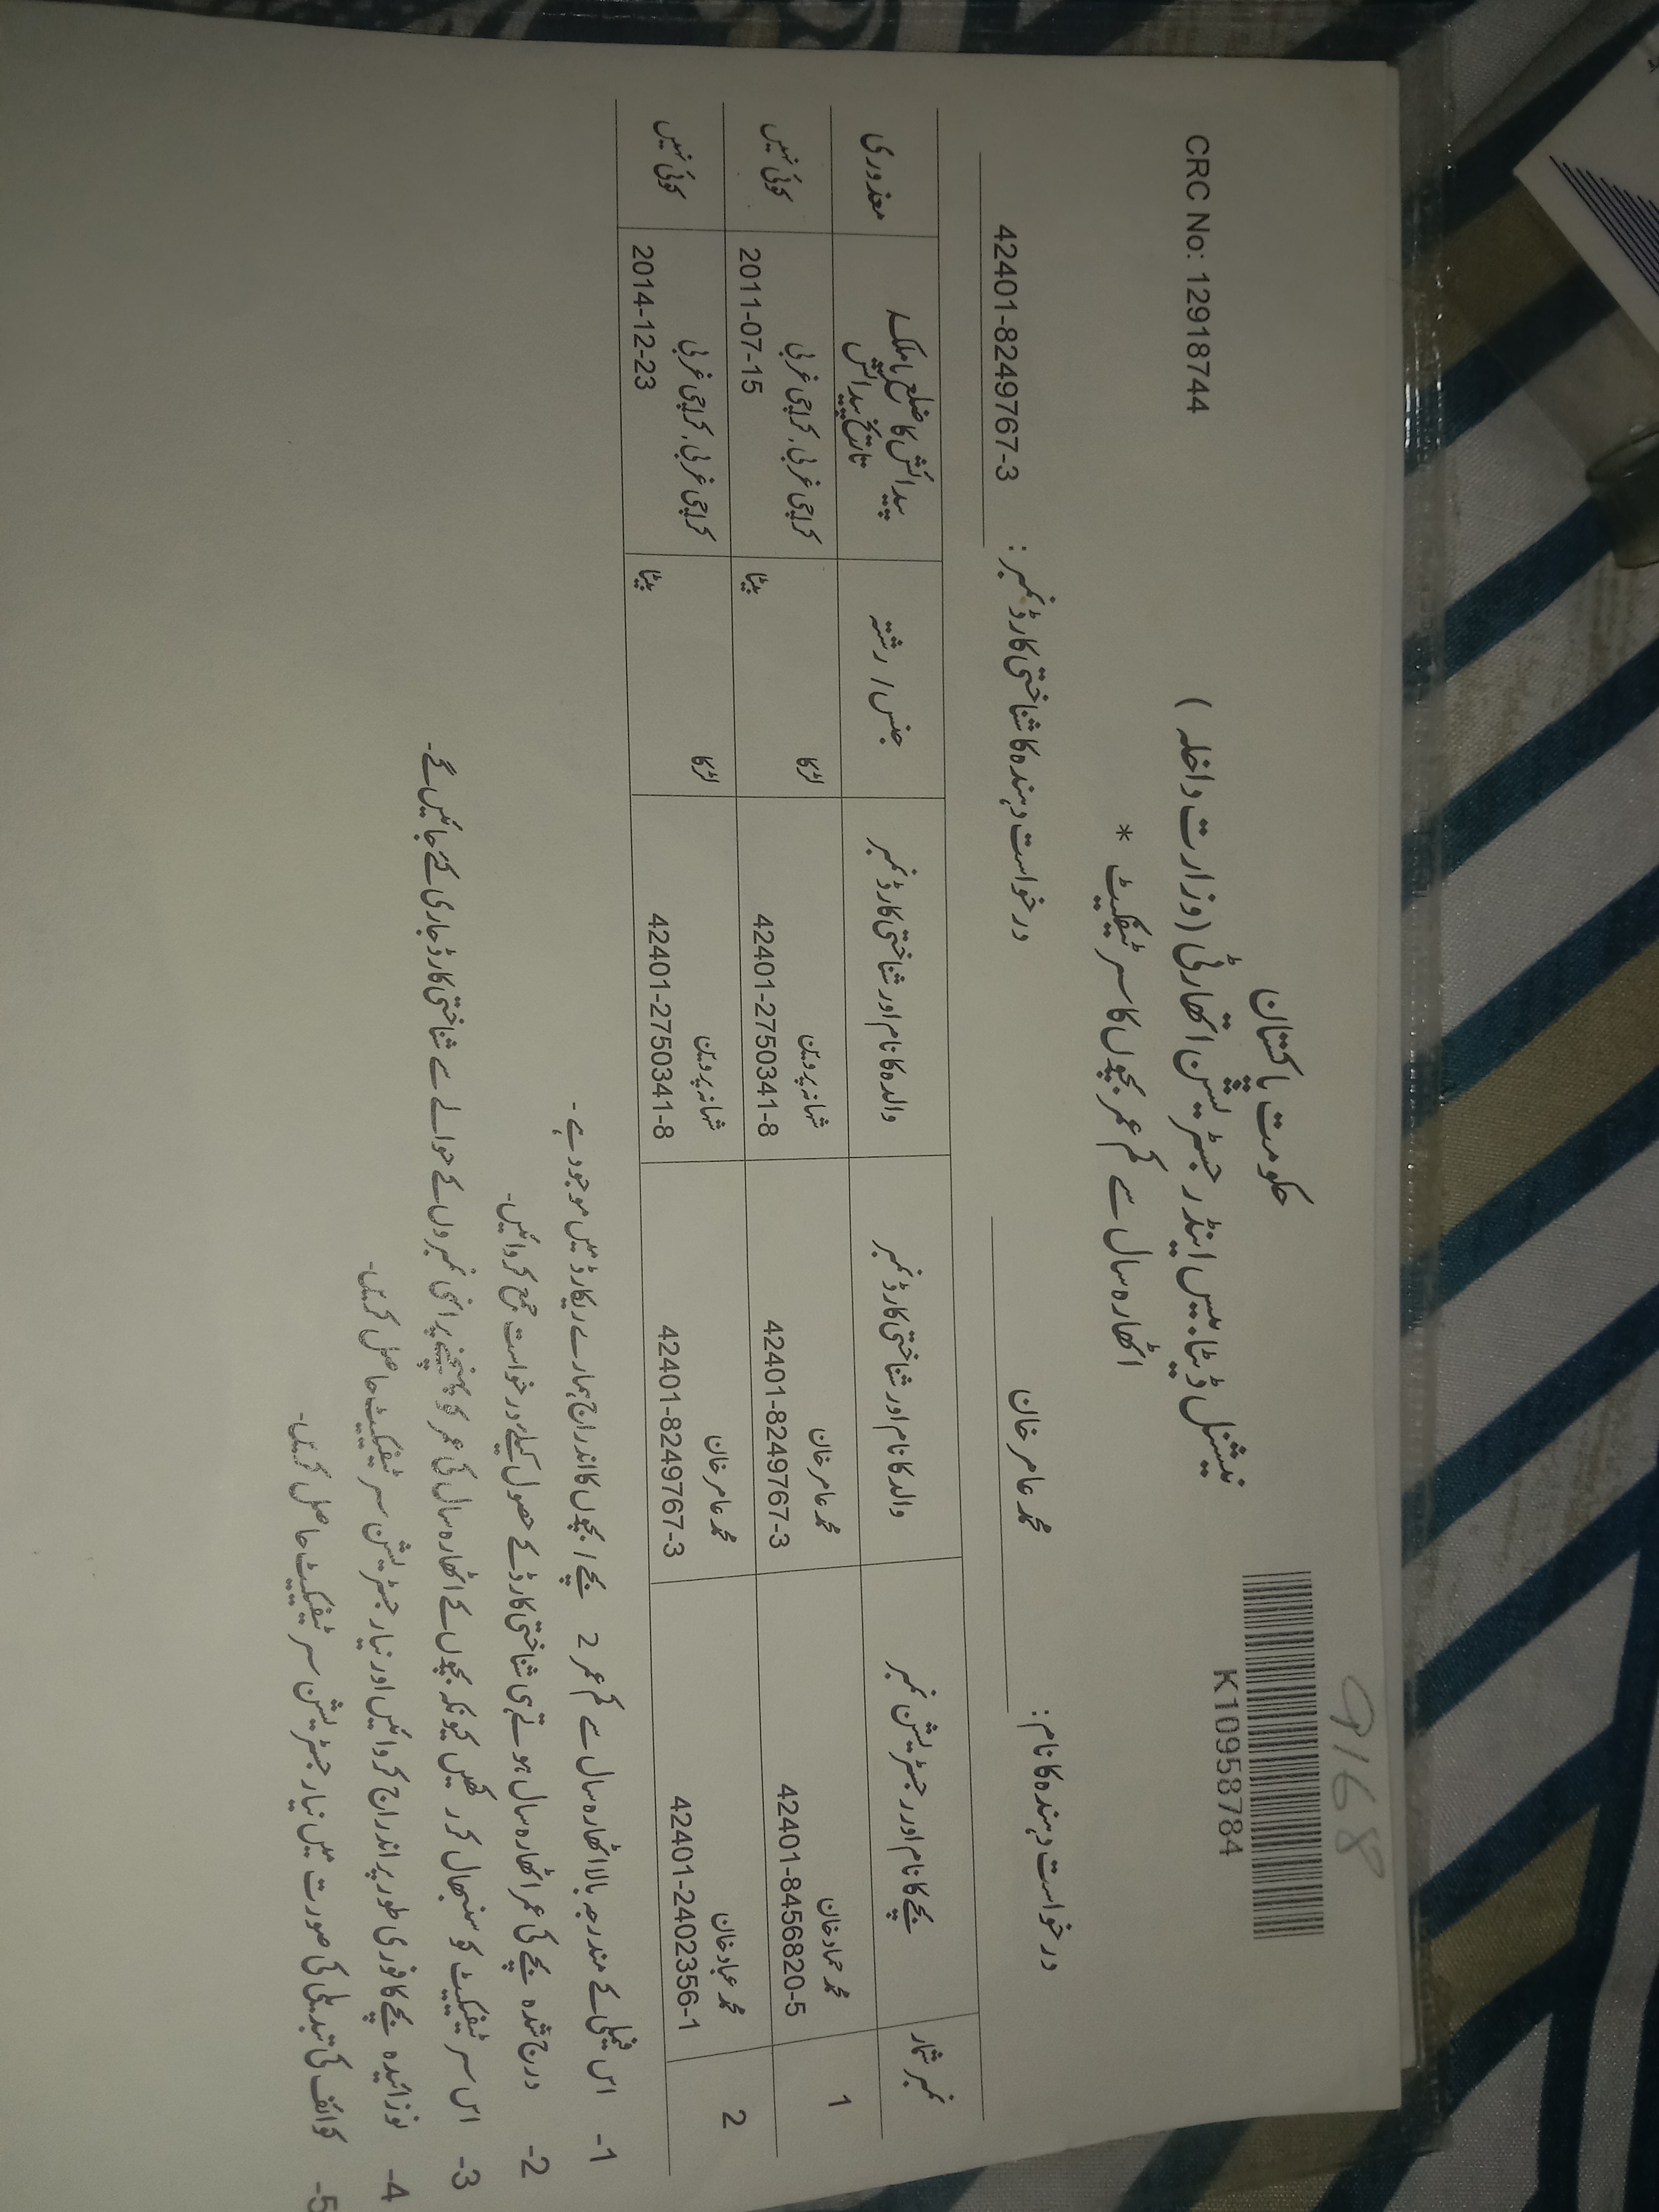 9168
K10958784
CRC No: 12918744
حکومت پاکستان
نیشنل ڈیٹا بیس اینڈ رجسٹریشن اتھارٹی (وزارت داخلہ)
اٹھارہ سال سے کم عمر بچوں کا سرٹیفکیٹ *
درخواست دہندہ کا نام: محمد عامر خان درخواست دہندہ کا شناختی کارڈ نمبر: 42401-8249767-3
نمبر شمار بچے کا نام اور رجسٹریشن نمبر والد کا نام اور شناختی کارڈ نمبر والدہ کا نام اور شناختی کارڈ نمبر جنس / رشتہ پیدائش کا ضلع / ملک / تاریخ پیدائش معذوری
1 محمد حماد خان محمد عامر خان شہانہ پروین لڑکا کراچی غربی، کراچی غربی کوئی نہیں
42401-8456820-5 42401-8249767-3 42401-2750341-8 بیٹا 2011-07-15
2 محمد عباد خان محمد عامر خان شہانہ پروین لڑکا کراچی غربی، کراچی غربی کوئی نہیں
42401-2402356-1 42401-8249767-3 42401-2750341-8 بیٹا 2014-12-23
1- اس فیملی کے مندرجہ بالا اٹھارہ سال سے کم عمر 2 بچے / بچوں کا اندراج ہمارے ریکارڈ میں موجود ہے۔
2- درج شدہ بچے کی عمر اٹھارہ سال ہوتے ہی شناختی کارڈ کے حصول کیلئے درخواست جمع کروائیں۔
3- اس سرٹیفکیٹ کو سنبھال کر رکھیں کیونکہ بچوں کے اٹھارہ سال کی عمر کو پہنچنے پر انہی نمبروں کے حوالے سے شناختی کارڈ جاری کئے جائیں گے۔
4- نوزائیدہ بچے کا فوری طور پر اندراج کروائیں اور نیا رجسٹریشن سرٹیفکیٹ حاصل کریں۔
5- کوائف کی تبدیلی کی صورت میں نیا رجسٹریشن سرٹیفکیٹ حاصل کریں۔